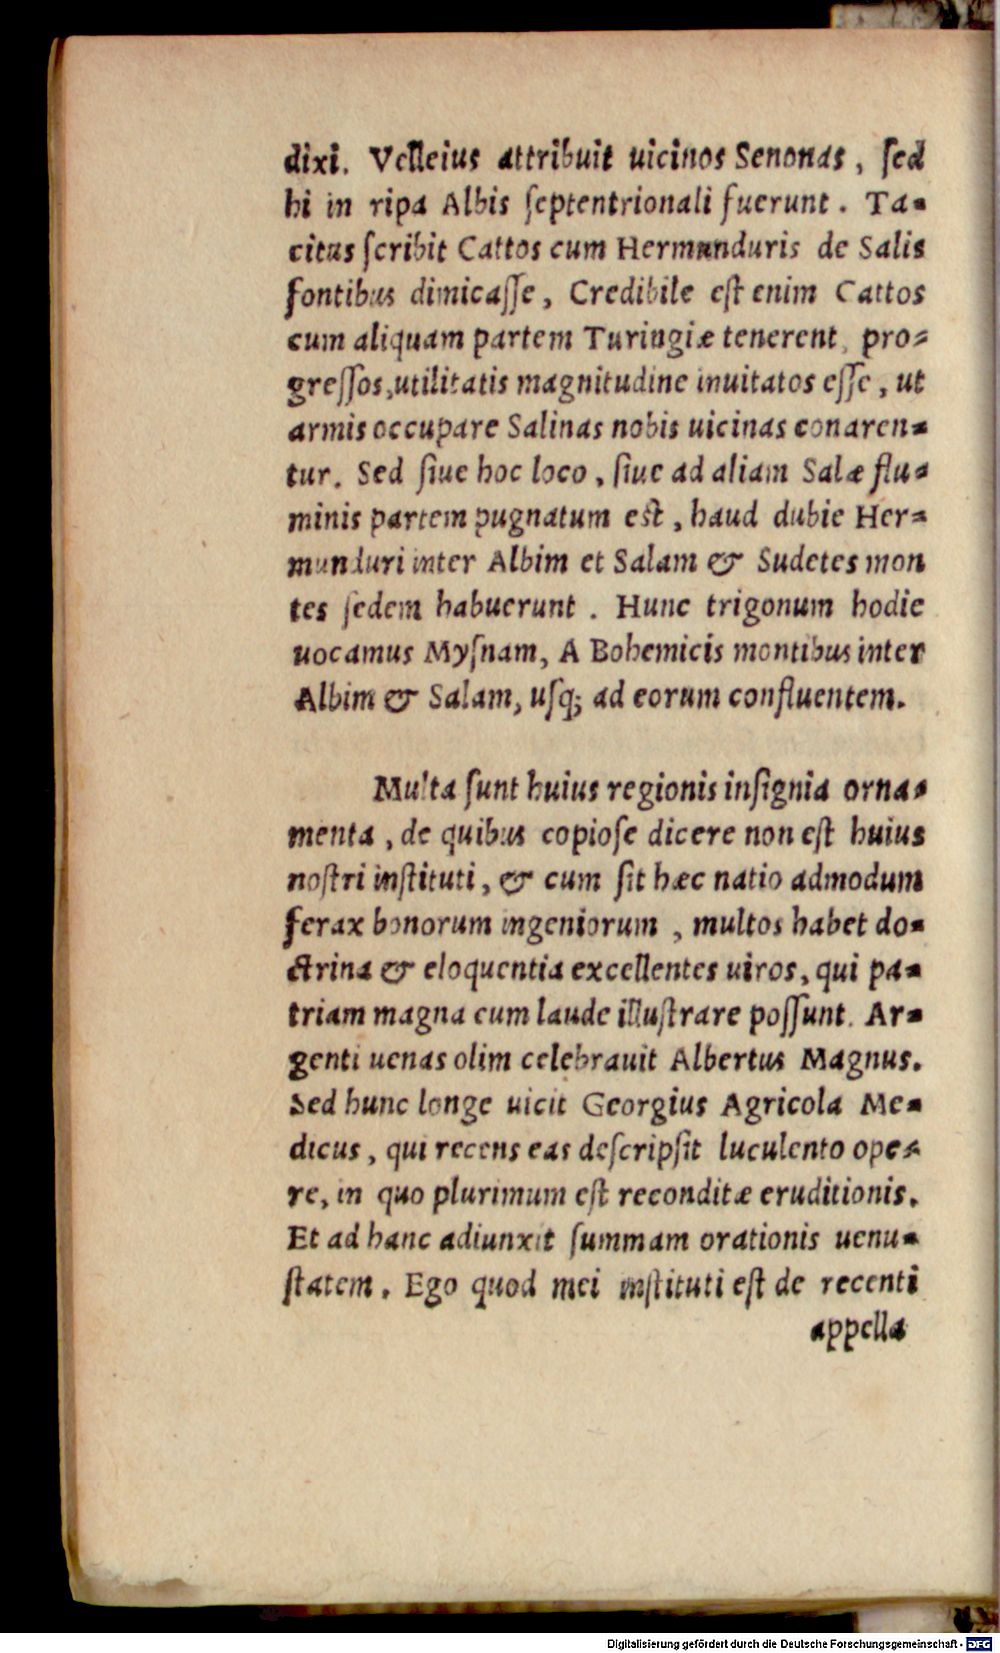 dixi. Velleius attribuit uicinos Senonas, ſed
hi in ripa Albis ſeptentrionali fuerunt. Ta-
citus ſcribit Cattos cum Hermunduris de Salis
fontibus dimicaſſe, Credibile eſt enim Cattos
cum aliquam partem Turingiæ tenerent, pro-
greſſos, utilitatis magnitudine inuitatos eſſe, ut
armis occupare Salinas nobis uicinas conaren-
tur. Sed ſiue hoc loco, ſiue ad aliam Salæ flu-
minis partem pugnatum eſt, haud dubie Her-
munduri inter Albim et Salam & Sudetes mon
tes ſedem habuerunt. Hunc trigonum hodie
uocamus Myſnam, A Bohemicis montibus inter
Albim & Salam, uſq; ad eorum confluentem.
Multa ſunt huius regionis inſignia orna-
menta, de quibus copioſe dicere non eſt huius
noſtri inſtituti, & cum ſit hæc natio admodum
ferax bonorum ingeniorum, multos habet do-
ctrina & eloquentia excellentes uiros, qui pa-
triam magna cum laude illuſtrare poſſunt. Ar-
genti uenas olim celebrauit Albertus Magnus.
Sed hunc longe uicit Georgius Agricola Me-
dicus, qui recens eas deſcripſit luculento ope-
re, in quo plurimum eſt reconditæ eruditionis.
Et ad hanc adiunxit ſummam orationis uenu-
ſtatem. Ego quod mei inſtituti eſt de recenti
appella
Digitalisierung gefördert durch die Deutsche Forschungsgemeinschaft - DFG